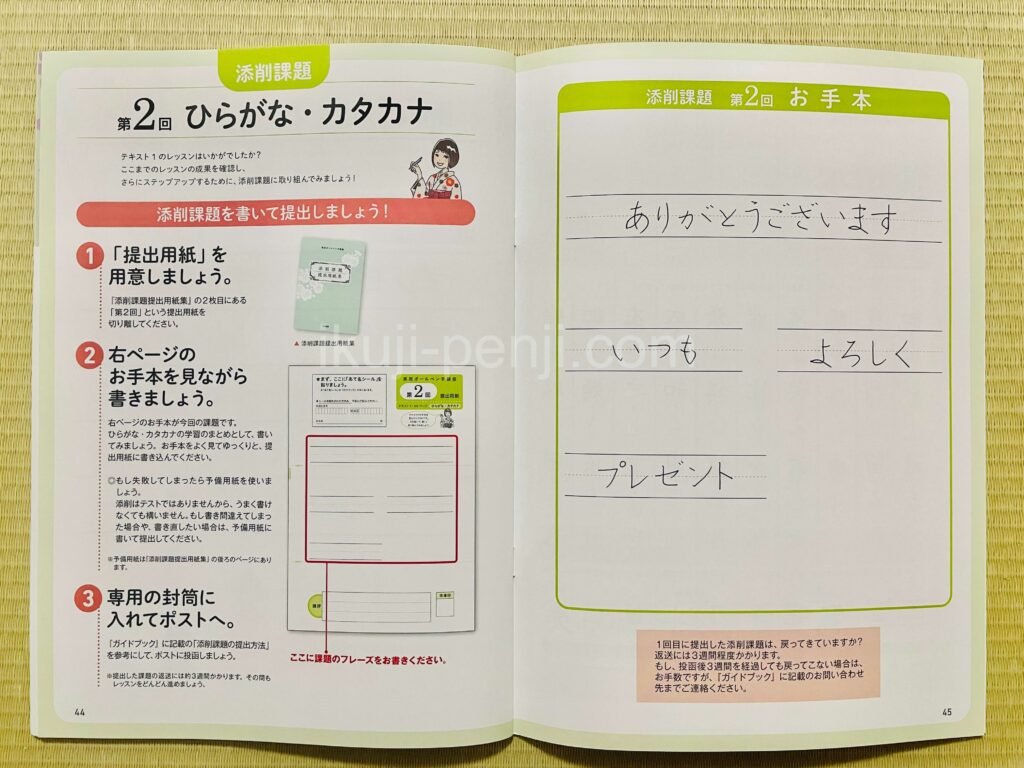 添削課題
第2回 ひらがな・カタカナ
テキスト1のレッスンはいかがでしたか?
ここまでのレッスンの成果を確認し、
さらにステップアップするために、添削課題に取り組んでみましょう!
添削課題を書いて提出しましょう!
1 「提出用紙」を
用意しましょう。
『添削課題提出用紙集』の2枚目にある
「第2回」という提出用紙を
切り離してください。
添削課題
提出用紙集
▲ 添削課題提出用紙集
2 右ページの
お手本を見ながら
書きましょう。
右ページのお手本が今回の課題です。
ひらがな・カタカナの学習のまとめとして、書い
てみましょう。お手本をよく見てゆっくりと、提
出用紙に書き込んでください。
◎もし失敗してしまったら予備用紙を使いま
しょう。
添削はテストではありませんから、うまく書け
なくても構いません。もし書き間違えてしまっ
た場合や、書き直したい場合は、予備用紙に
書いて提出してください。
※予備用紙は『添削課題提出用紙集』の後ろのページにあり
ます。
★まず、ここに「あて名シール」を
貼りましょう。
実用ボールペン字講座
第2回 提出用紙
ひらがな・カタカナ
講評
ここに課題のフレーズをお書きください。
3 専用の封筒に
入れてポストへ。
『ガイドブック』に記載の「添削課題の提出方法」
を参考にして、ポストに投函しましょう。
※提出した課題の返送には約3週間かかります。その間も
レッスンをどんどん進めましょう。
44
添削課題 第2回 お手本
ありがとうございます
いつも よろしく
プレゼント
1回目に提出した添削課題は、戻ってきていますか?
返送には3週間程度かかります。
もし、投函後3週間を経過しても戻ってこない場合は、
お手数ですが、『ガイドブック』に記載のお問い合わせ
先までご連絡ください。
45
ikuji-penji.com